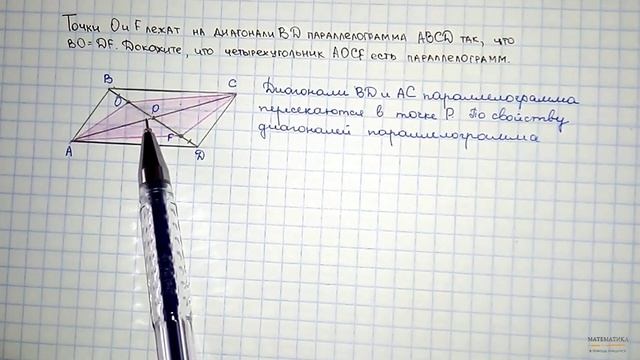 Точки O и F лежат на диагонали BD параллелограмма ABCD так, что
BO = DF. Докажите, что четырехугольник AOCF есть параллелограмм.
B
C
O
P
F
A
D
Диагонали BD и AC параллелограмма
пересекаются в точке P. По свойству
диагоналей параллелограмма
МАТЕМАТИКА